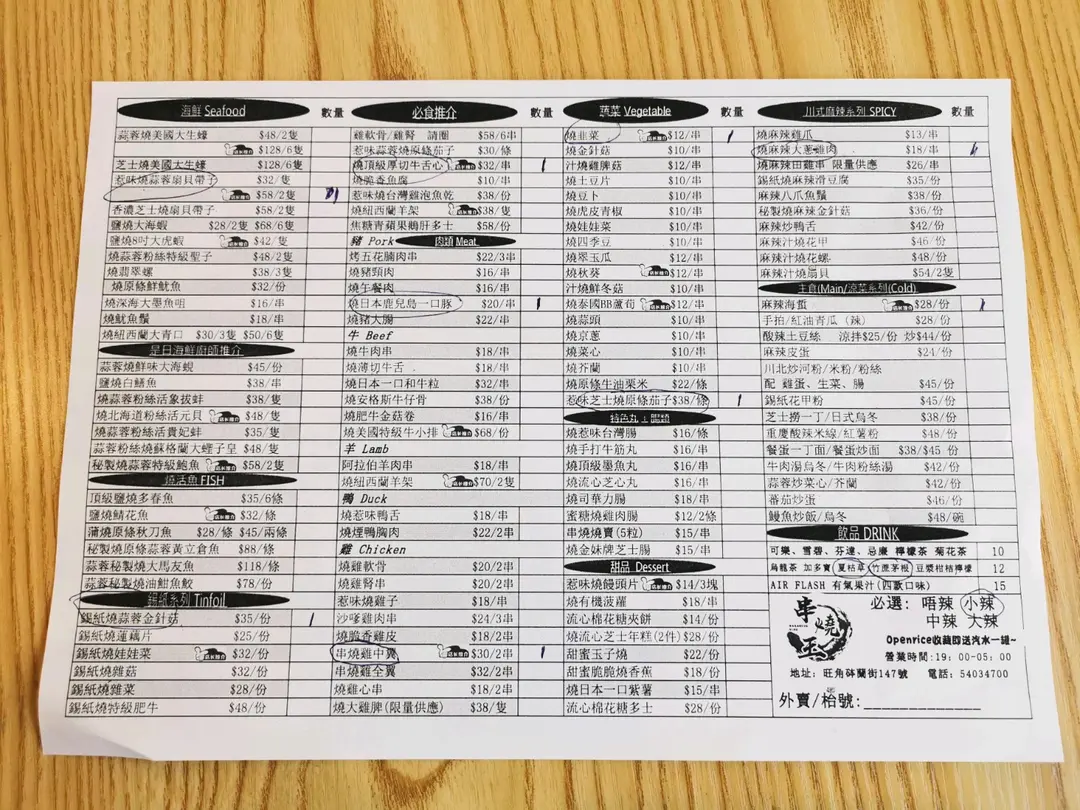 海鮮 Seafood 數量
蒜蓉燒美國大生蠔 $48/2隻
$128/6隻
芝士燒美國太生蠔 $128/6隻
惹味燒蒜蓉扇貝帶子 $32/隻
$58/2隻
香濃芝士燒扇貝帶子 $58/2隻
鹽燒大海蝦 $28/2隻 $68/6隻
鹽燒8吋大虎蝦 $42/隻
燒蒜蓉粉絲特級聖子 $48/2隻
燒翡翠螺 $38/3隻
燒原條鮮魷魚 $32/份
燒深海大墨魚咀 $16/串
燒魷魚鬚 $18/串
燒紐西蘭大青口 $30/3隻 $50/6隻
是日海鮮廚師推介
蒜蓉燒鮮味大海蜆 $45/份
鹽燒白鱔魚 $38/串
燒蒜蓉粉絲活象拔蚌 $38/隻
燒北海道粉絲活元貝 $48/隻
燒蒜蓉粉絲活貴妃蚌 $35/隻
蒜蓉粉絲燒蘇格蘭大蟶子皇 $48/隻
秘製燒蒜蓉特級鮑魚 $58/2隻
燒活魚 FISH
頂級鹽燒多春魚 $35/6條
鹽燒鯖花魚 $32/條
蒲燒原條秋刀魚 $28/條 $45/兩條
秘製燒原條蒜蓉黃立倉魚 $88/條
蒜蓉秘製燒大馬友魚 $118/條
蒜蓉秘製燒油䱽魚鮫 $78/份
錫紙系列 Tinfoil
錫紙燒蒜蓉金針菇 $35/份 1
錫紙燒蓮藕片 $25/份
錫紙燒娃娃菜 $32/份
錫紙燒雜菇 $32/份
錫紙燒雜菜 $28/份
錫紙燒特級肥牛 $48/份
必食推介 數量
雞軟骨/雞腎 請圈 $58/6串
惹味蒜蓉燒原條茄子 $30/條
燒頂級厚切牛舌心 $32/串 1
燒脆香魚腐 $10/串
惹味燒台灣雞泡魚乾 $38/份
燒紐西蘭羊架 $38/隻
焦糖青蘋果鵝肝多士 $58/份
豬 Pork 肉類 Meat
烤五花腩肉串 $22/3串
燒豬頸肉 $16/串
燒午餐肉 $16/串
燒日本鹿兒島一口豚 $20/串 1
燒豬大腸 $22/串
牛 Beef
燒牛肉串 $18/串
燒薄切牛舌 $18/串
燒日本一口和牛粒 $32/串
燒安格斯牛仔骨 $38/份
燒肥牛金菇卷 $16/串
燒美國特級牛小排 $68/份
羊 Lamb
阿拉伯羊肉串 $18/串
燒紐西蘭羊架 $70/2隻
鴨 Duck
燒惹味鴨舌 $18/串
燒煙鴨胸肉 $22/2串
雞 Chicken
燒雞軟骨 $20/2串
燒雞腎串 $20/2串
惹味燒雞子 $18/串
沙嗲雞肉串 $24/3串
燒脆香雞皮 $18/2串
串燒雞中翼 $30/2串 1
串燒雞全翼 $32/2串
燒雞心串 $18/2串
燒大雞髀(限量供應) $38/隻
蔬菜 Vegetable 數量
燒韭菜 $12/串 1
燒金針菇 $10/串
汁燒雞脾菇 $12/串
燒土豆片 $10/串
燒豆卜 $10/串
燒虎皮青椒 $10/串
燒娃娃菜 $10/串
燒四季豆 $10/串
燒翠玉瓜 $10/串
燒秋葵 $12/串
汁燒鮮冬菇 $10/串
燒泰國BB露荀 $12/串
燒蒜頭 $10/串
燒京蔥 $10/串
燒菜心 $10/串
燒芥蘭 $10/串
燒原條牛油栗米 $22/條
惹味芝士燒原條茄子$38/條 1
特色丸、腸類
燒惹味台灣腸 $16/條
燒手打牛筋丸 $16/串
燒頂級墨魚丸 $16/串
燒流心芝心丸 $16/串
燒司華力腸 $18/串
蜜糖燒雞肉腸 $12/2條
串燒燒賣(5粒) $15/串
燒金妹牌芝士腸 $15/串
甜品 Dessert
惹味燒饅頭片 $14/3塊
燒有機菠蘿 $18/串
流心棉花糖夾餅 $14/串
燒流心芝士年糕(2件) $28/份
甜蜜玉子燒 $22/份
甜蜜脆脆燒香蕉 $18/份
燒日本一口紫薯 $15/串
流心棉花糖多士 $28/份
川式麻辣系列 SPICY 數量
燒麻辣雞爪 $13/串
燒麻辣大蔥雞肉 $18/串
燒麻辣田雞串 限量供應 $26/串
錫紙燒麻辣滑豆腐 $35/份
麻辣八爪魚鬚 $38/份
秘製燒麻辣金針菇 $36/份
麻辣炒鴨舌 $42/份
麻辣汁燒花甲 $46/份
麻辣汁燒花螺 $48/份
麻辣汁燒扇貝 $54/2隻
主食(Main/涼菜系列(Cold)
麻辣海蜇 $28/份
手拍/紅油青瓜 (辣) $28/份
酸辣土豆絲 涼拌$25/份 炒$44/份
麻辣皮蛋 $24/份
川北炒河粉/米粉/粉絲
配 雞蛋、生菜、腸 $45/份
錫紙花甲粉 $45/份
芝士撈一丁/日式烏冬 $38/份
重慶酸辣米線/紅薯粉 $48/份
餐蛋一丁面/餐蛋炒面 $38/$45 份
牛肉湯烏冬/牛肉粉絲湯 $42/份
蒜蓉炒菜心/芥蘭 $42/份
蕃茄炒蛋 $46/份
鰻魚炒飯/烏冬 $48/碗
飲品 DRINK
可樂、雪碧、芬達、忌廉 檸檬茶 菊花茶 10
烏龍茶 加多寶 夏枯草 竹蔗茅根 豆漿柑桔檸檬 12
AIR FLASH 有氣果汁(四款口味) 15
串燒王
必選: 唔辣 小辣
中辣 大辣
Openrice收藏即送汽水一罐~
營業時間:19:00-05:00
地址: 旺角砵蘭街147號 電話: 54034700
外賣/枱號: